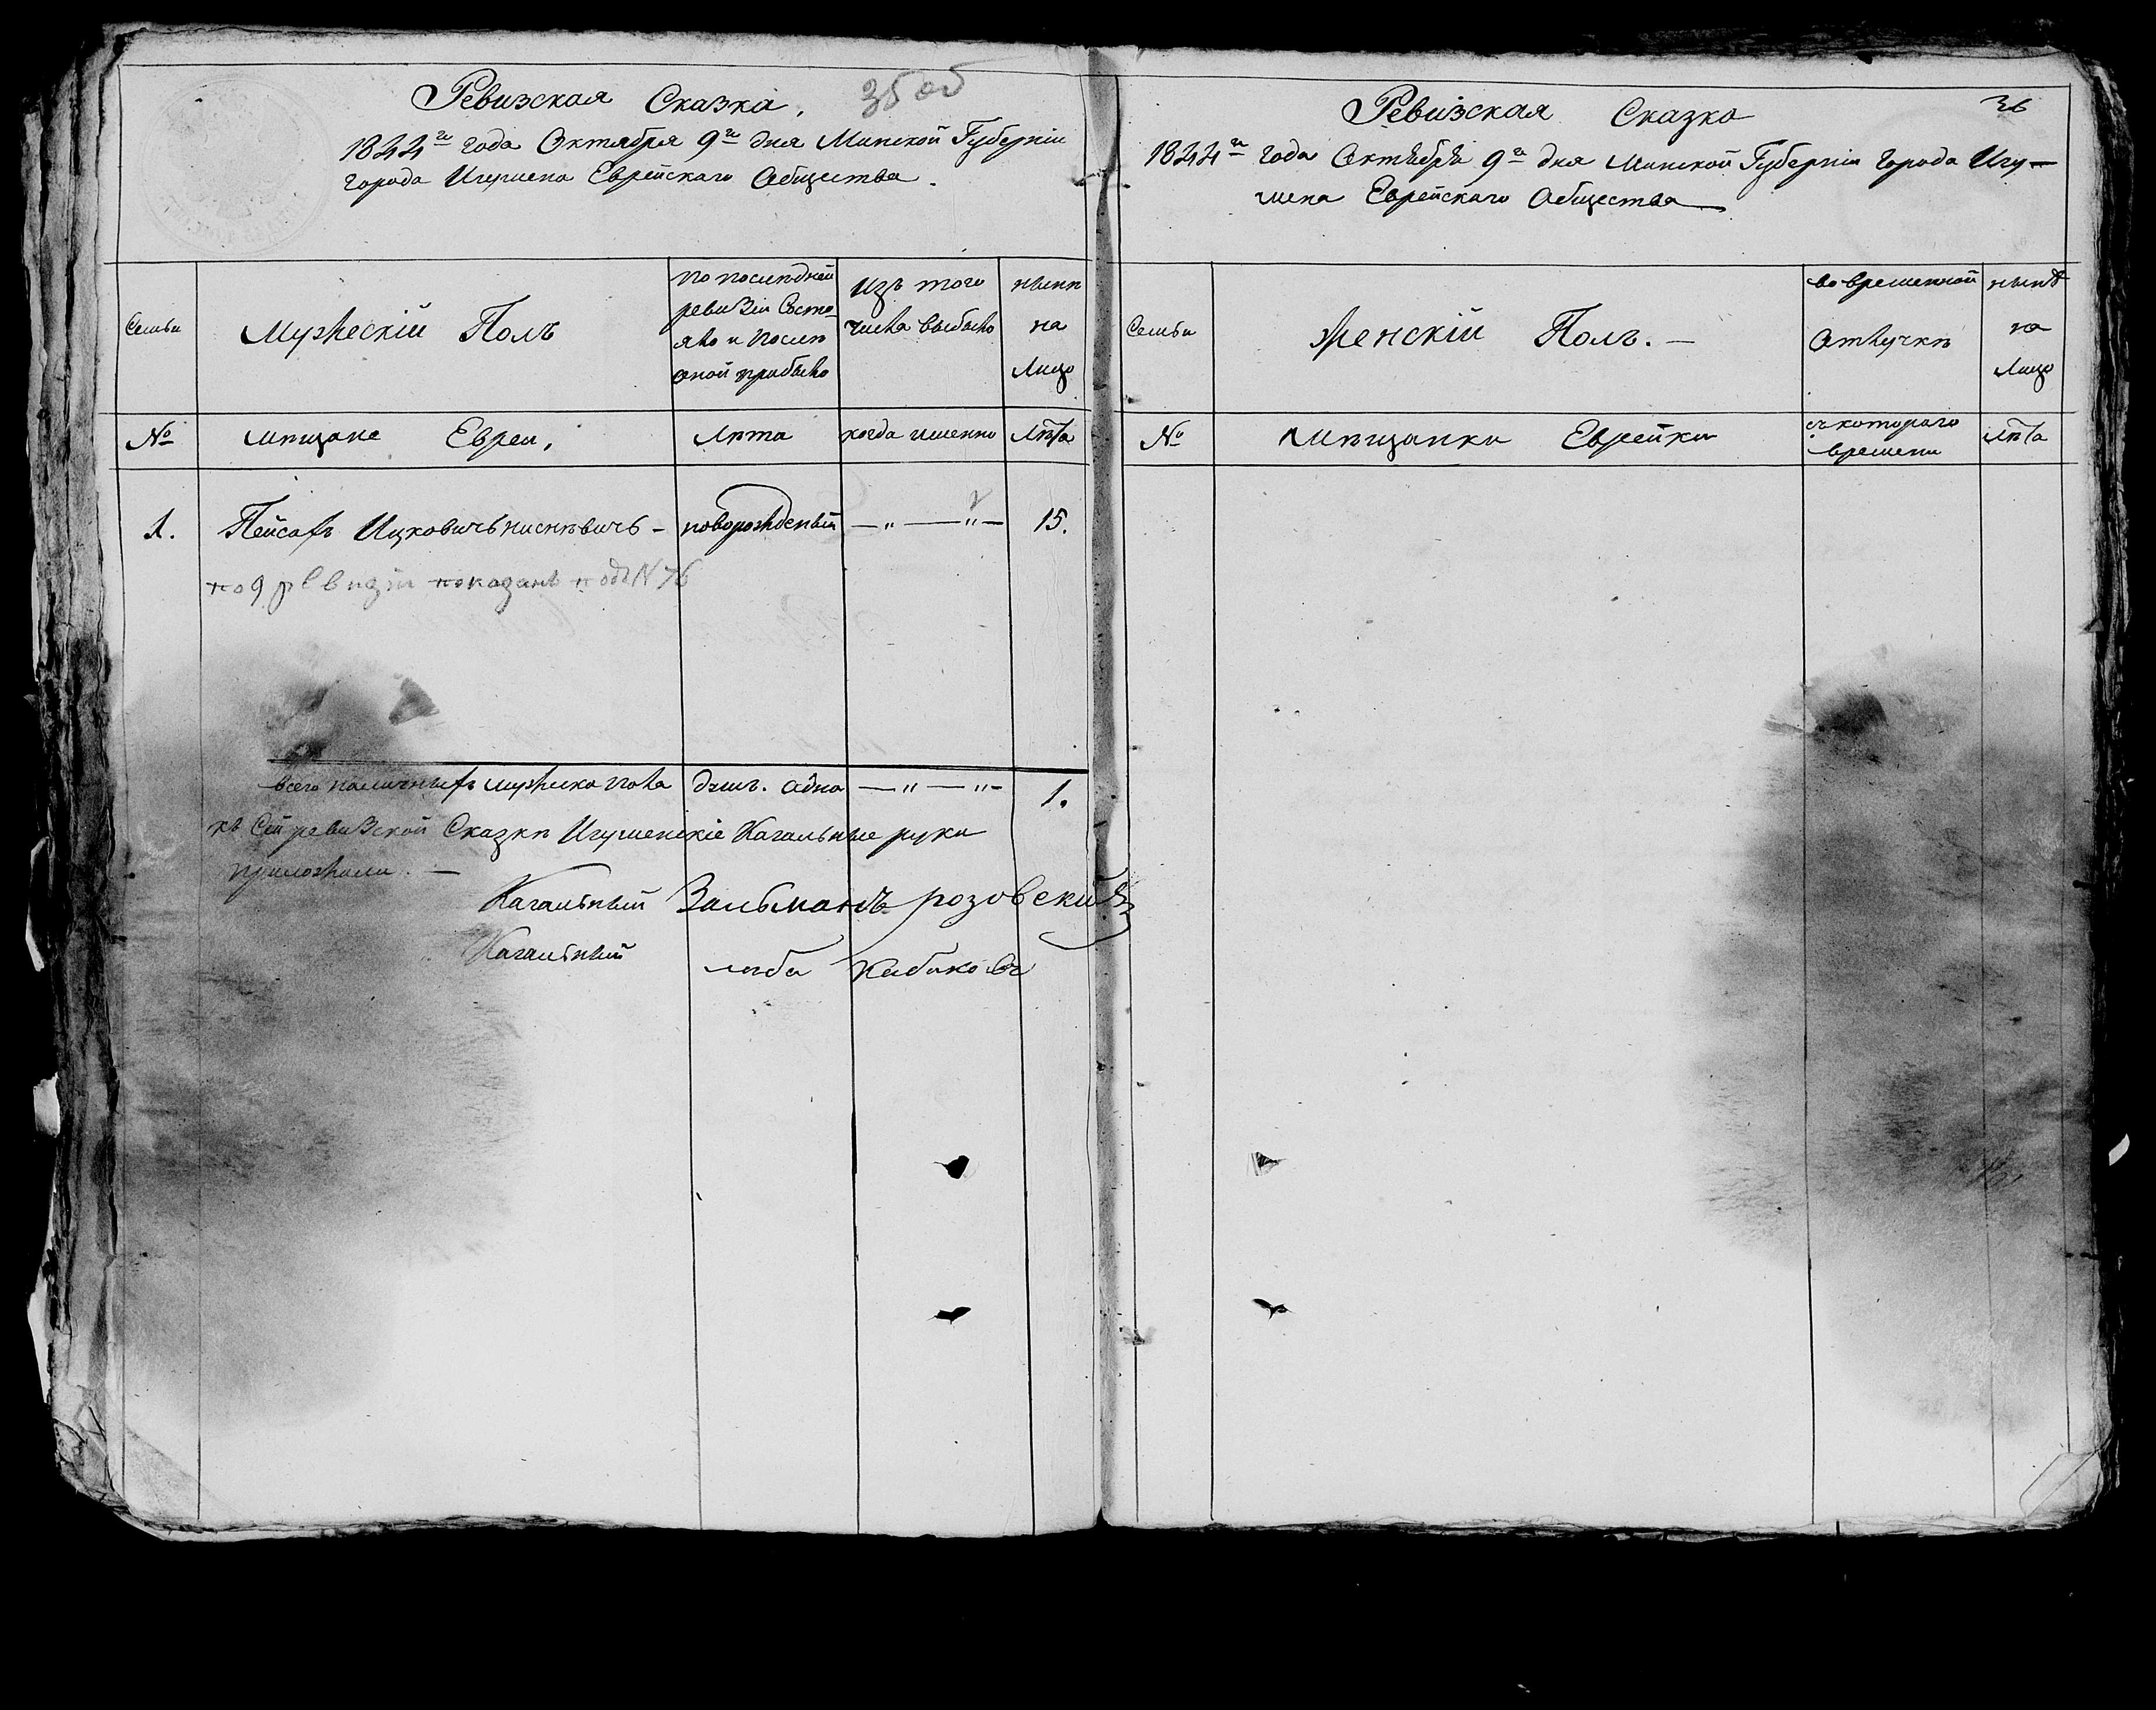 Ревизская Сказка.
35 об
1844го года Октября 9го дня Минской Губерніи
города Игумена Еврейскаго Общества.
Семьи
Мужескій Полъ
по послѣдней
ревизіи Состо-
яло и послѣ
оной прибыло
Изъ того
числа выбыло
нынѣ
на
лицо
№
мѣщане Евреи,
лѣта
когда именно
лѣта
1.
Пейсахъ Ицковичъ
новорожденный
— „ — „ —
15.
по 9 ревизіи показанъ подъ N 76
всего наличныхъ мужска пола
душъ. одна
— „ — „ —
1.
къ Сей ревизской Сказкѣ Игуменскіе Кагальные руки
приложили. —
Кагальный Зальманъ розовскій
Кагальный
36
Ревизская Сказка
1844го года Октября 9го дня Минской Губерніи города Игу-
мена Еврейскаго Общества
Семьи
Женскій Полъ. —
во временной
отлучкѣ
нынѣ
на
лицо
№
мѣщанки Еврейки
съ котораго
времени
лѣта